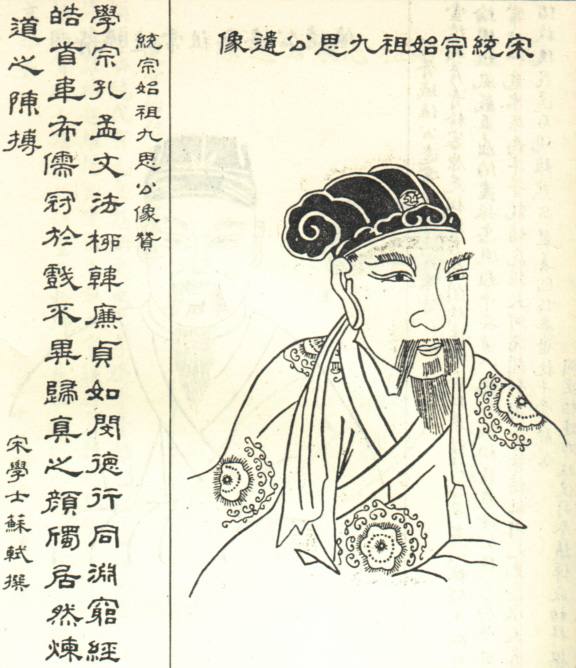 宋統宗始祖九思公遺像
統宗始祖九思公像贊
學宗孔孟文法柳韓廉貞如閔德行同淵窮經
皓首韋布儒冠於戲不異歸真之顏斶居然煉
道之陳摶
宋學士蘇軾撰